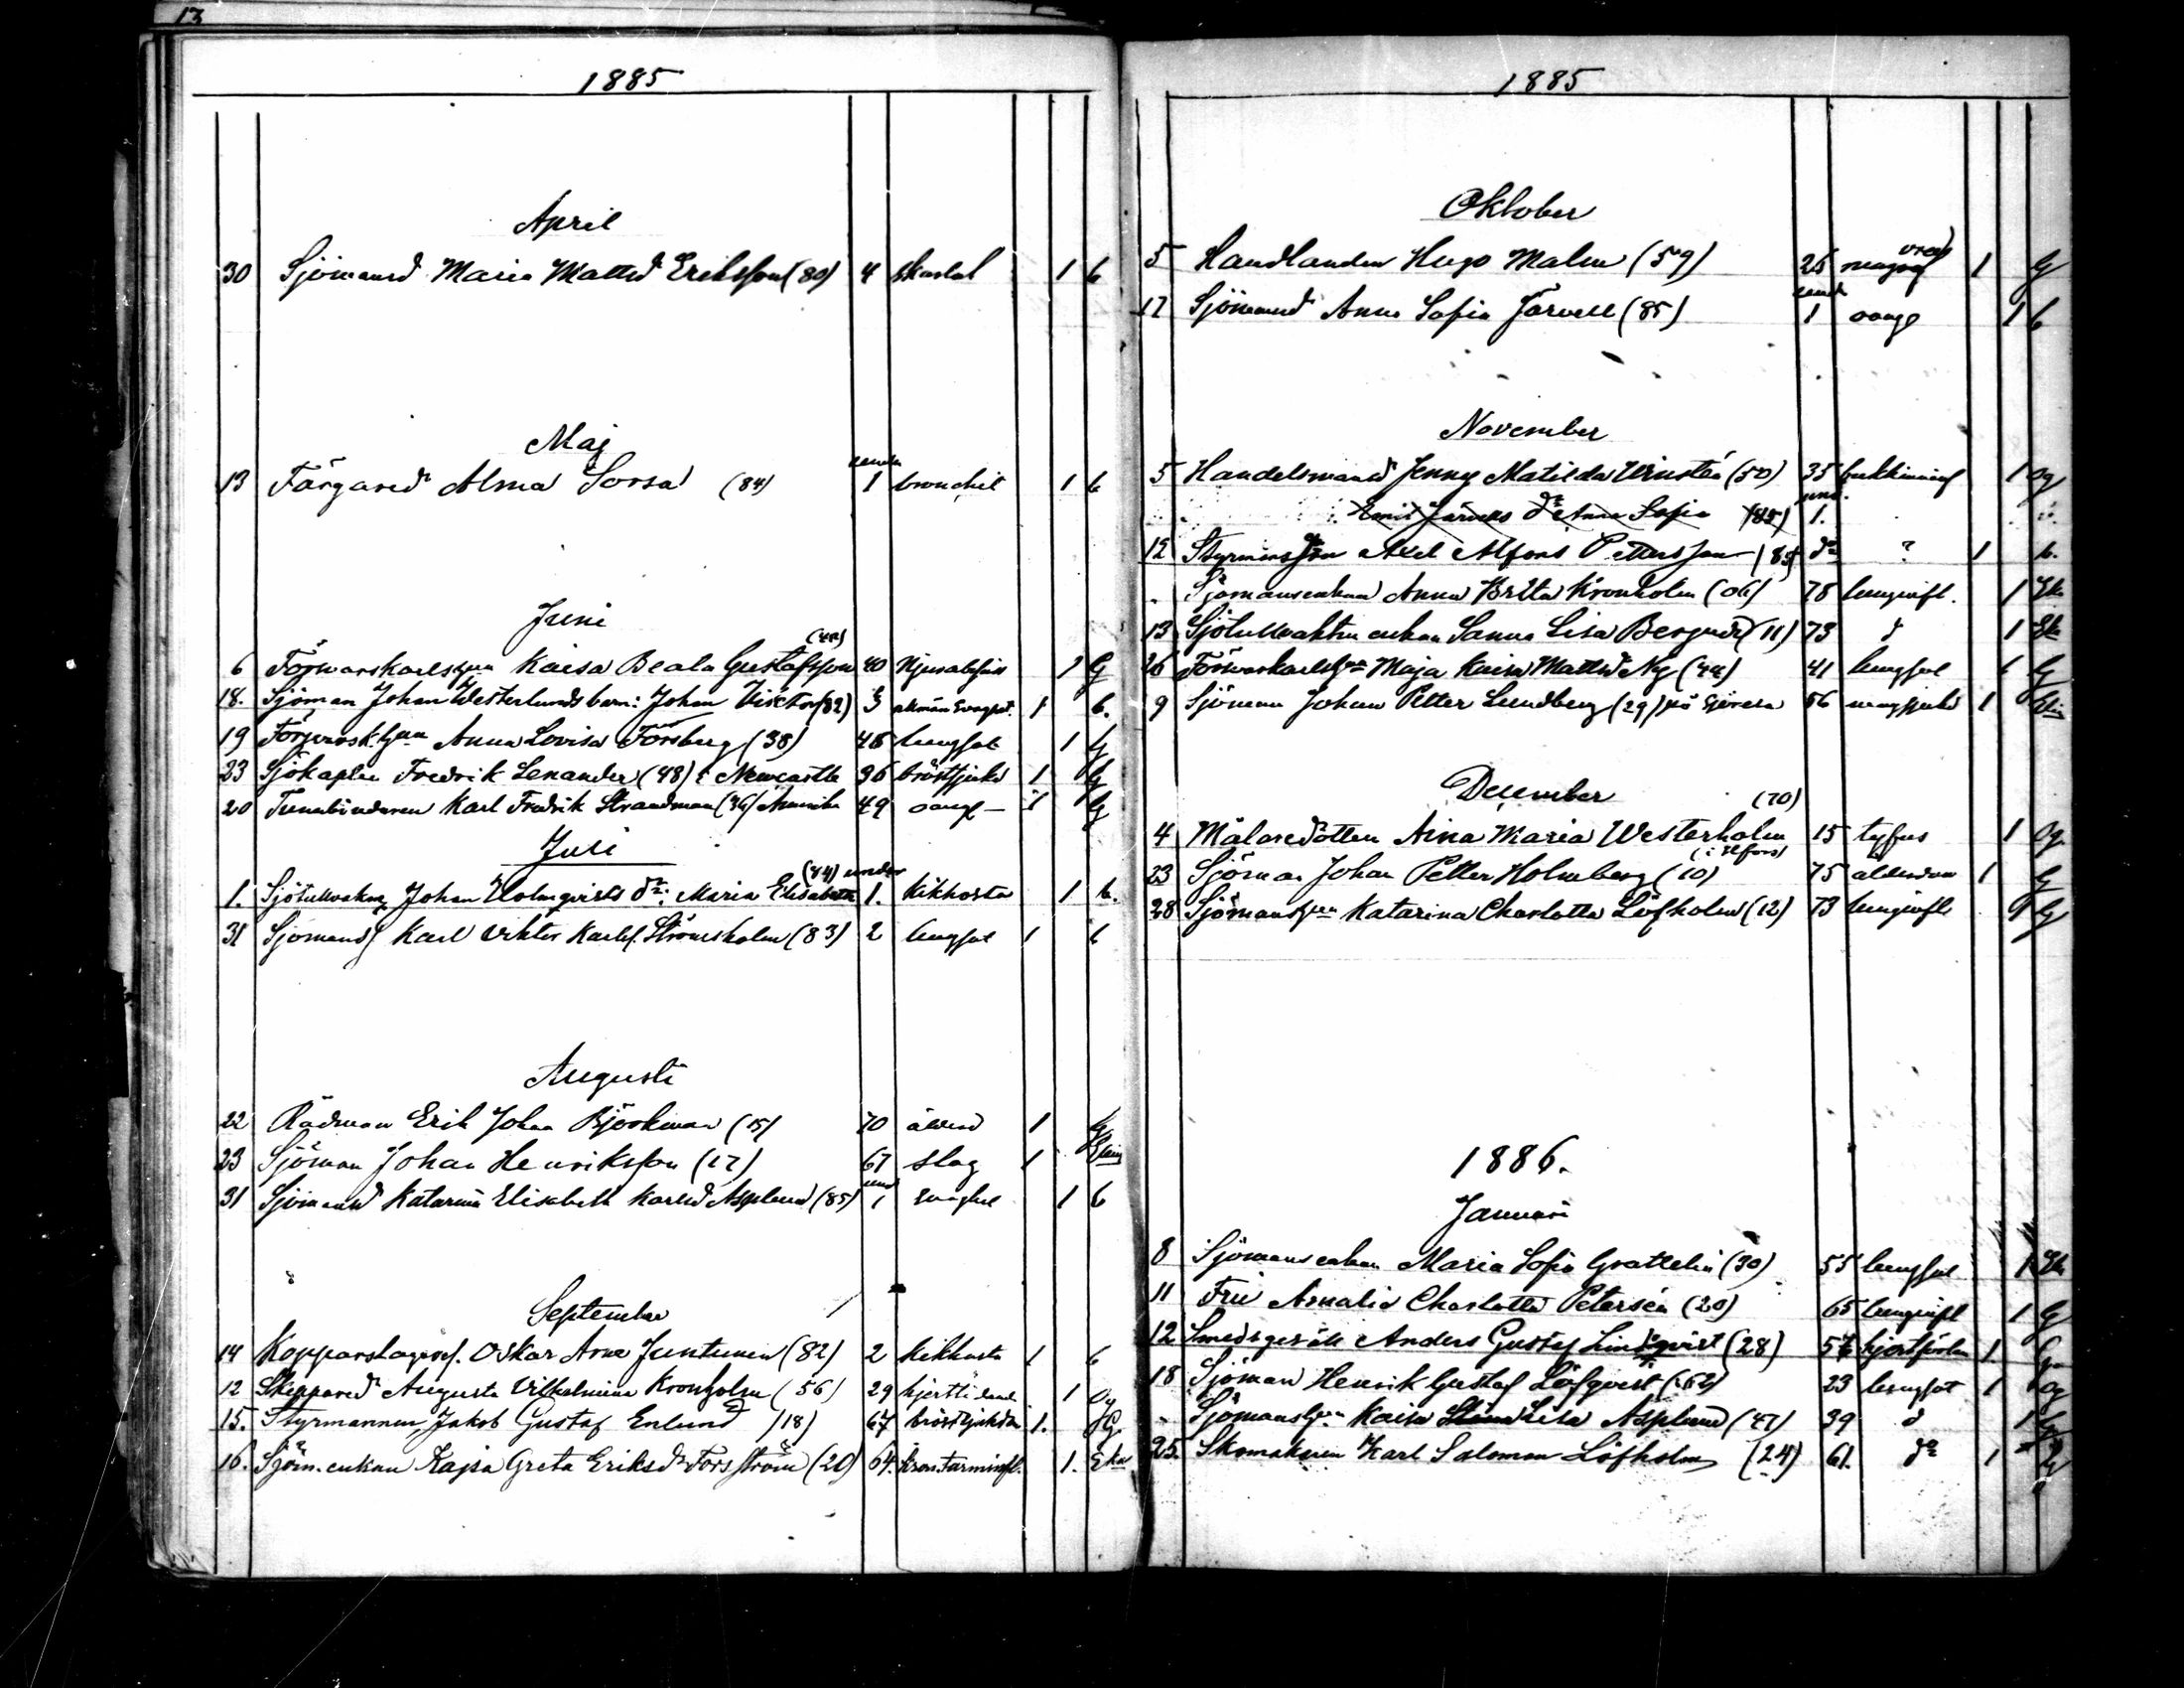 13
1885
April
30 Sjömansd Maria Mattsd Eriksson (80) 4 skarlak 1 b
Maj
under
13 Färgared Alma Sorsa (84) 1 bronchit 1 b
Juni
6 Försvarskarlshun Kaisa Beata Gustafsson 40 Njursabscess 1 G
18. Sjöman Johan Westerlunds barn: Johan Viktor (82) 3 almän svaghet. 1 b.
19 Försvarsk. hun Anna Lovisa Forsberg (38) 46 lungsot 1 G
23 Sjökapten Fredrik Lenander (48) i Newcastle 36 bröstsjukd 1 G
20 Tunnbindaren Karl Fredrik Strandman (36) Amerika 49 oangf — 1 G
Juli
(84) under
1. Sjötullvaktm Johan Holmqvists dr: Maria Elisabeth 1. kikhosta 1 b.
31 Sjömans Karl Viktor Karls. Strömsholm (83) 2 lungsot 1 b
Augusti
22 Rådman Erik Johan Björkman (15) 70 ålderd 1 G
23 Sjöman Johan Henriksson (17) 67 slag 1
und
31 Sjömansd Katarina Elisabeth Karlsd Asplund (85) 1 svaghet 1 b
September
14 Kopparslagares. Oskar Arne Juntunen (82) 2 kikhosta 1 b
12 Skeppared Augusta Vilhelmina Kronholm (56) 29 hjertlidand 1 Og
15. Styrmannen Jakob Gustaf Enlund (18) 67 bröstsjukdm 1. G.
16. Sjöm. enkan Kajsa Greta Eriksdr Forsström (20) 64. kron. tarminfl. 1. Eka
1885
Oktober
5 Handlanden Hugo Malm (59) 26 1 G
und
17 Sjömansd Anna Sofia Järvell (85) 1 oangf 1 b
November
5 Handelsmansd Jenny Matilda Winstén (50) 35 1 og
Emil Järvells dr Anna Sofia (85) 1.
12 Styrmansson Axel Alfons Pettersson (85) do ? 1 b.
Sjömansenkan Anna Britta Kronholm (06) 78 lunginfl. 1 Eka
13 Sjötullvaktm enkan Sanna Lisa Berglund (11) 73 d 1 Eka
26 Försvarskarlshun Maja Kaisa Mattsd Ny (44) 41 lungsot 1 G
9 Sjöman Johan Petter Lundberg (29) på sjöresa 56 magsjukd 1
December
(70)
4 Målaredottern Aina Maria Westerholm 15 tyfus 1 Og
(i Hfors)
23 Sjöman Johan Petter Holmberg (10) 75 ålderdom 1 G
28 Sjömanshun Katarina Charlotta Löfholm (12) 73 lunginfl 1 G
1886.
Januari
8 Sjömansenkan Maria Sofia Grattelin (30) 55 lungsot 1 Eka
11 Fru Amalia Charlotta Petersén (20) 65 lunginfl 1 G
12 Smedsgesäll Anders Gustaf Lindqvist (28) 57 hjertförlam 1.
18 Sjöman Henrik Gustaf Löfqvist (62) 23 lungsot 1 og
Sjömanshun Kaisa Lisa Asplund (47) 39 d 1 G
25. Skomakaren Karl Salomon Löfholm (24) 61. do 1